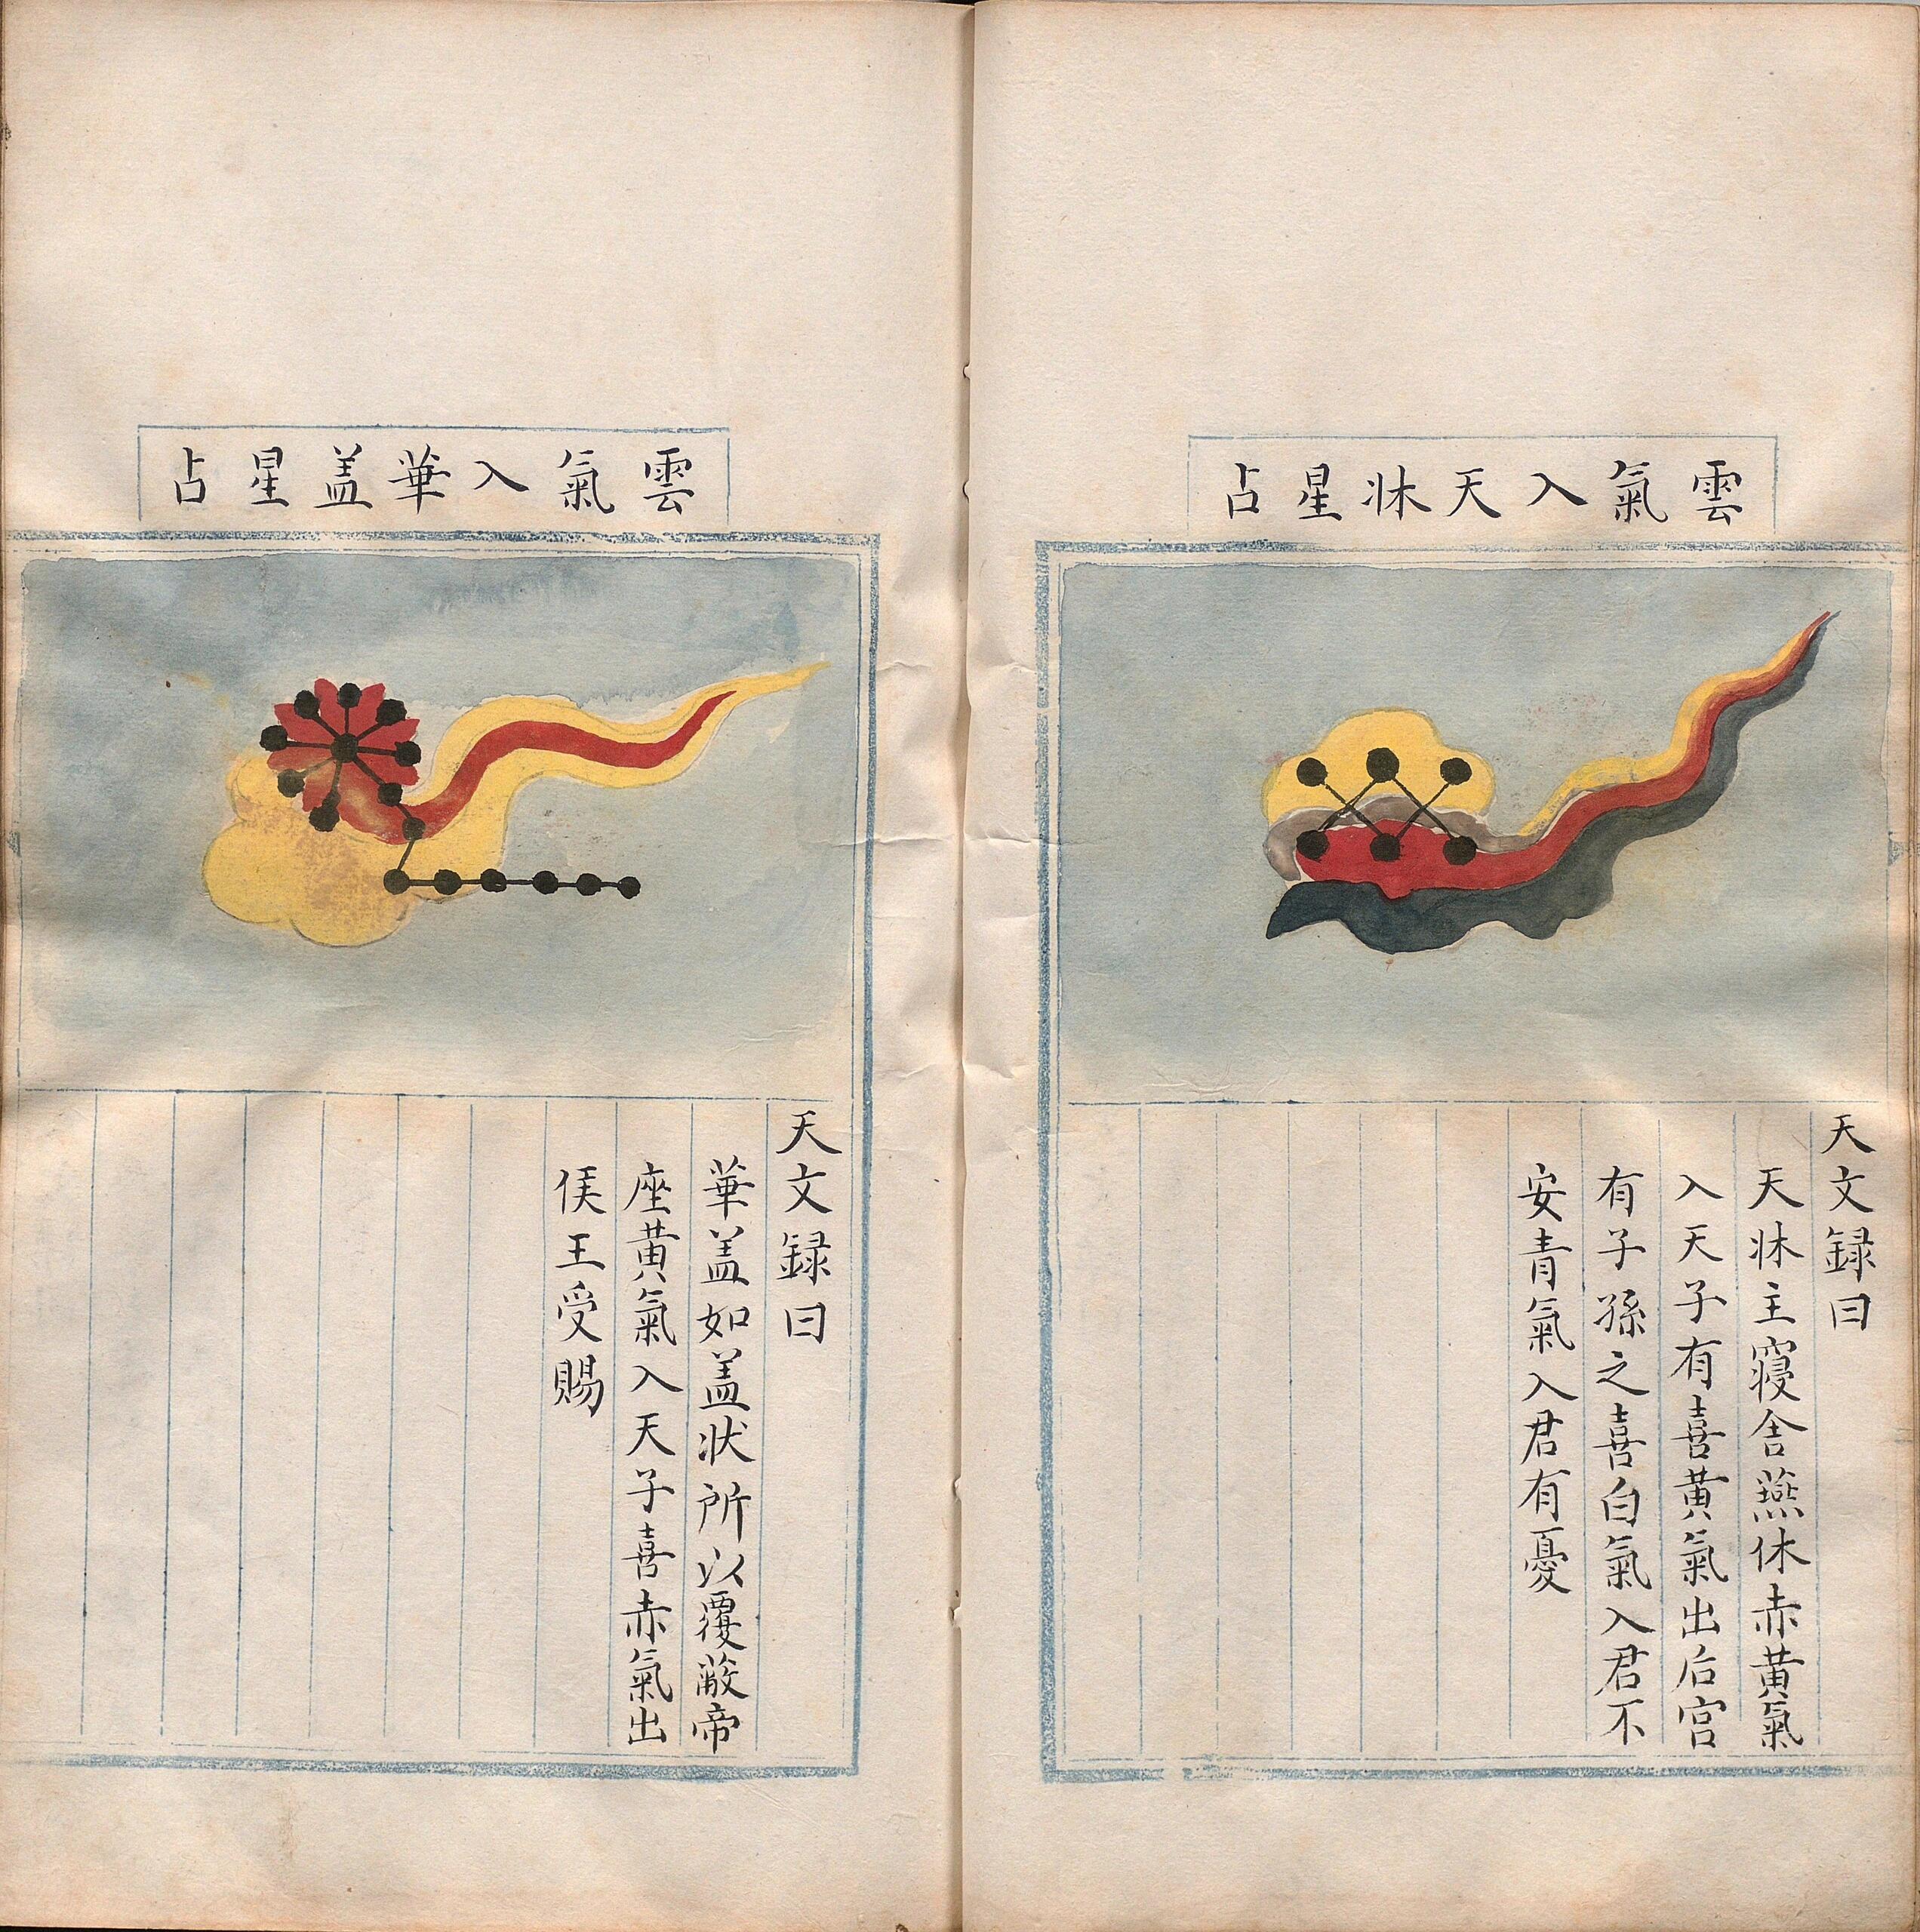 雲氣入天牀星占
天文録曰
天牀主寝舍燕休赤黄氣
入天子有喜黄氣出后宫
有子孫之喜白氣入君不
安青氣入君有憂
雲氣入華盖星占
天文録曰
華盖如盖状所以覆蔽帝
座黄氣入天子喜赤氣出
侯王受賜